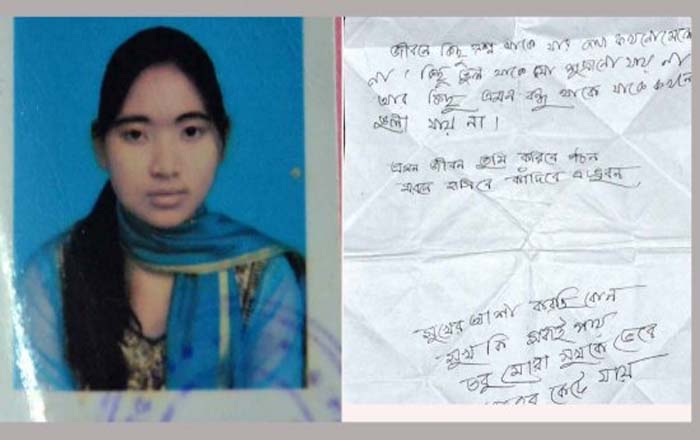 জীবনে কিছু প্রশ্ন থাকে যার কথা কখনো মেলে
না। কিছু ভুল থাকে যা শুধরানো যায় না
আর কিছু এমন বন্ধু থাকে যাকে কখনো
ভুলা যায় না।
এমন জীবন তুমি করিবে গঠন
মরনে হাসিবে কাঁদিবে এ ভুবন
সুখের আশা করছি কেন
সুখ কি সবাই পায়
তবু মোরা সুখকে ভেবে
কেটে যায়